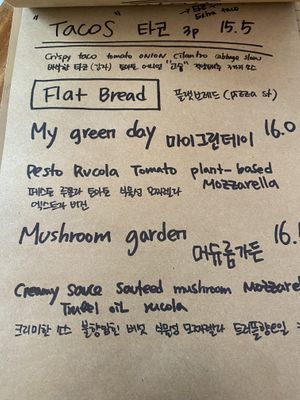 "TACOS" 타코 3p 15.5
Crispy taco tomato onion cilantro cabbage slaw
Flat Bread 플랫브레드 (pizza st)
My green day 마이그린데이 16.0
Pesto Rucola Tomato plant-based
Mozzarella
페스토 루꼴라 토마토 식물성 모짜렐라
Mushroom garden 머쉬룸가든 16.
Creamy sauce sauteed mushroom Mozzare
oil rucola
크리미한 소스 버섯 식물성 모짜렐라 트러플향오일